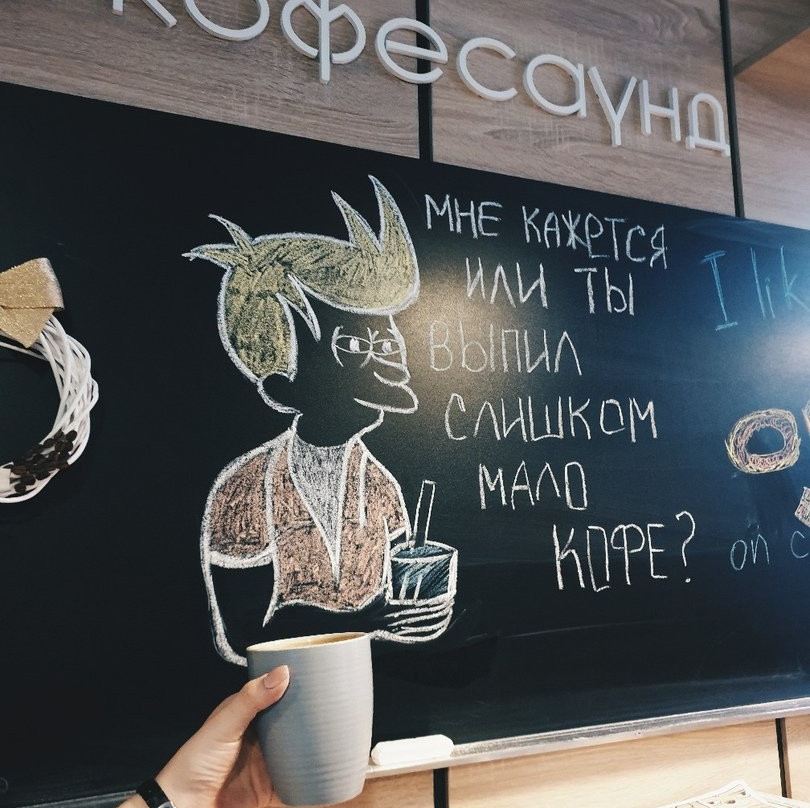 кофесаунд
МНЕ КАЖЕТСЯ
ИЛИ ТЫ
ВЫПИЛ
СЛИШКОМ
МАЛО
КОФЕ?
I lik
on c